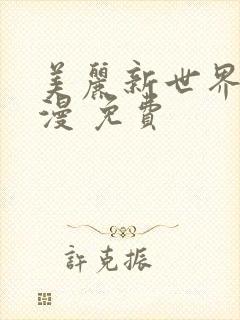 美麗新世界
漫 免費
許克振